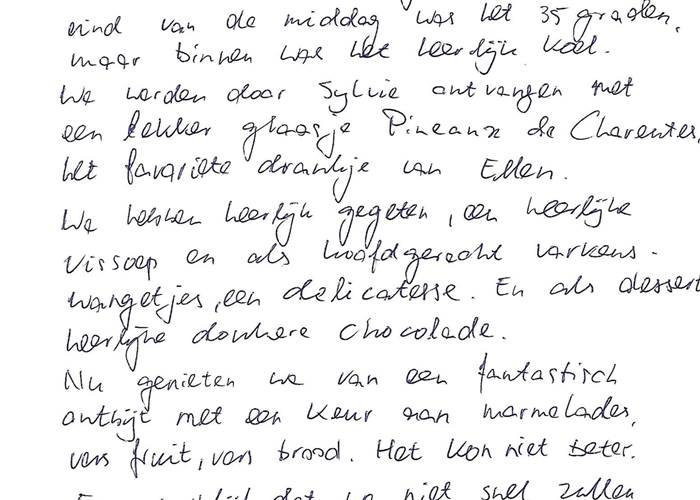 eind van de middag was het 35 graden,
maar binnen was het heerlijk koel.
We werden door Sylvie ontvangen met
een lekker glaasje Pineaux de Charentes,
het favoriete drankje van Ellen.
We hebben heerlijk gegeten, een heerlijke
vissoep en als hoofdgerecht varkens-
wangetjes, een delicatesse. En als dessert
heerlijke donkere chocolade.
Nu genieten we van een fantastisch
ontbijt met een keur aan marmelades,
vers fruit, vers brood. Het kon niet beter.
dat we niet snel zullen